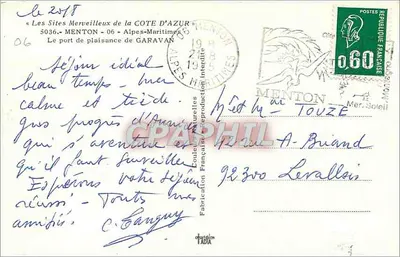 le 20/8
« Les Sites Merveilleux de la COTE D'AZUR »
5036. - MENTON - 06 - Alpes-Maritimes
Le port de plaisance de GARAVAN
06
Séjour idéal
beau temps - mer
calme et tiède.
Gros progrès d'
qui s'aventure et
qu'il faut surveiller
Espérons votre séjour
réussi - Toutes mes
amitiés. C. Tanguy
Fabrication Française - Reproduction interdite
MENTON
ALPES MARITIMES
MENTON
Mer. Soleil
POSTES
0,60
M et Me TOUZE
42 rue A. Briand
92300 Levallois
CPAPHIL.COM